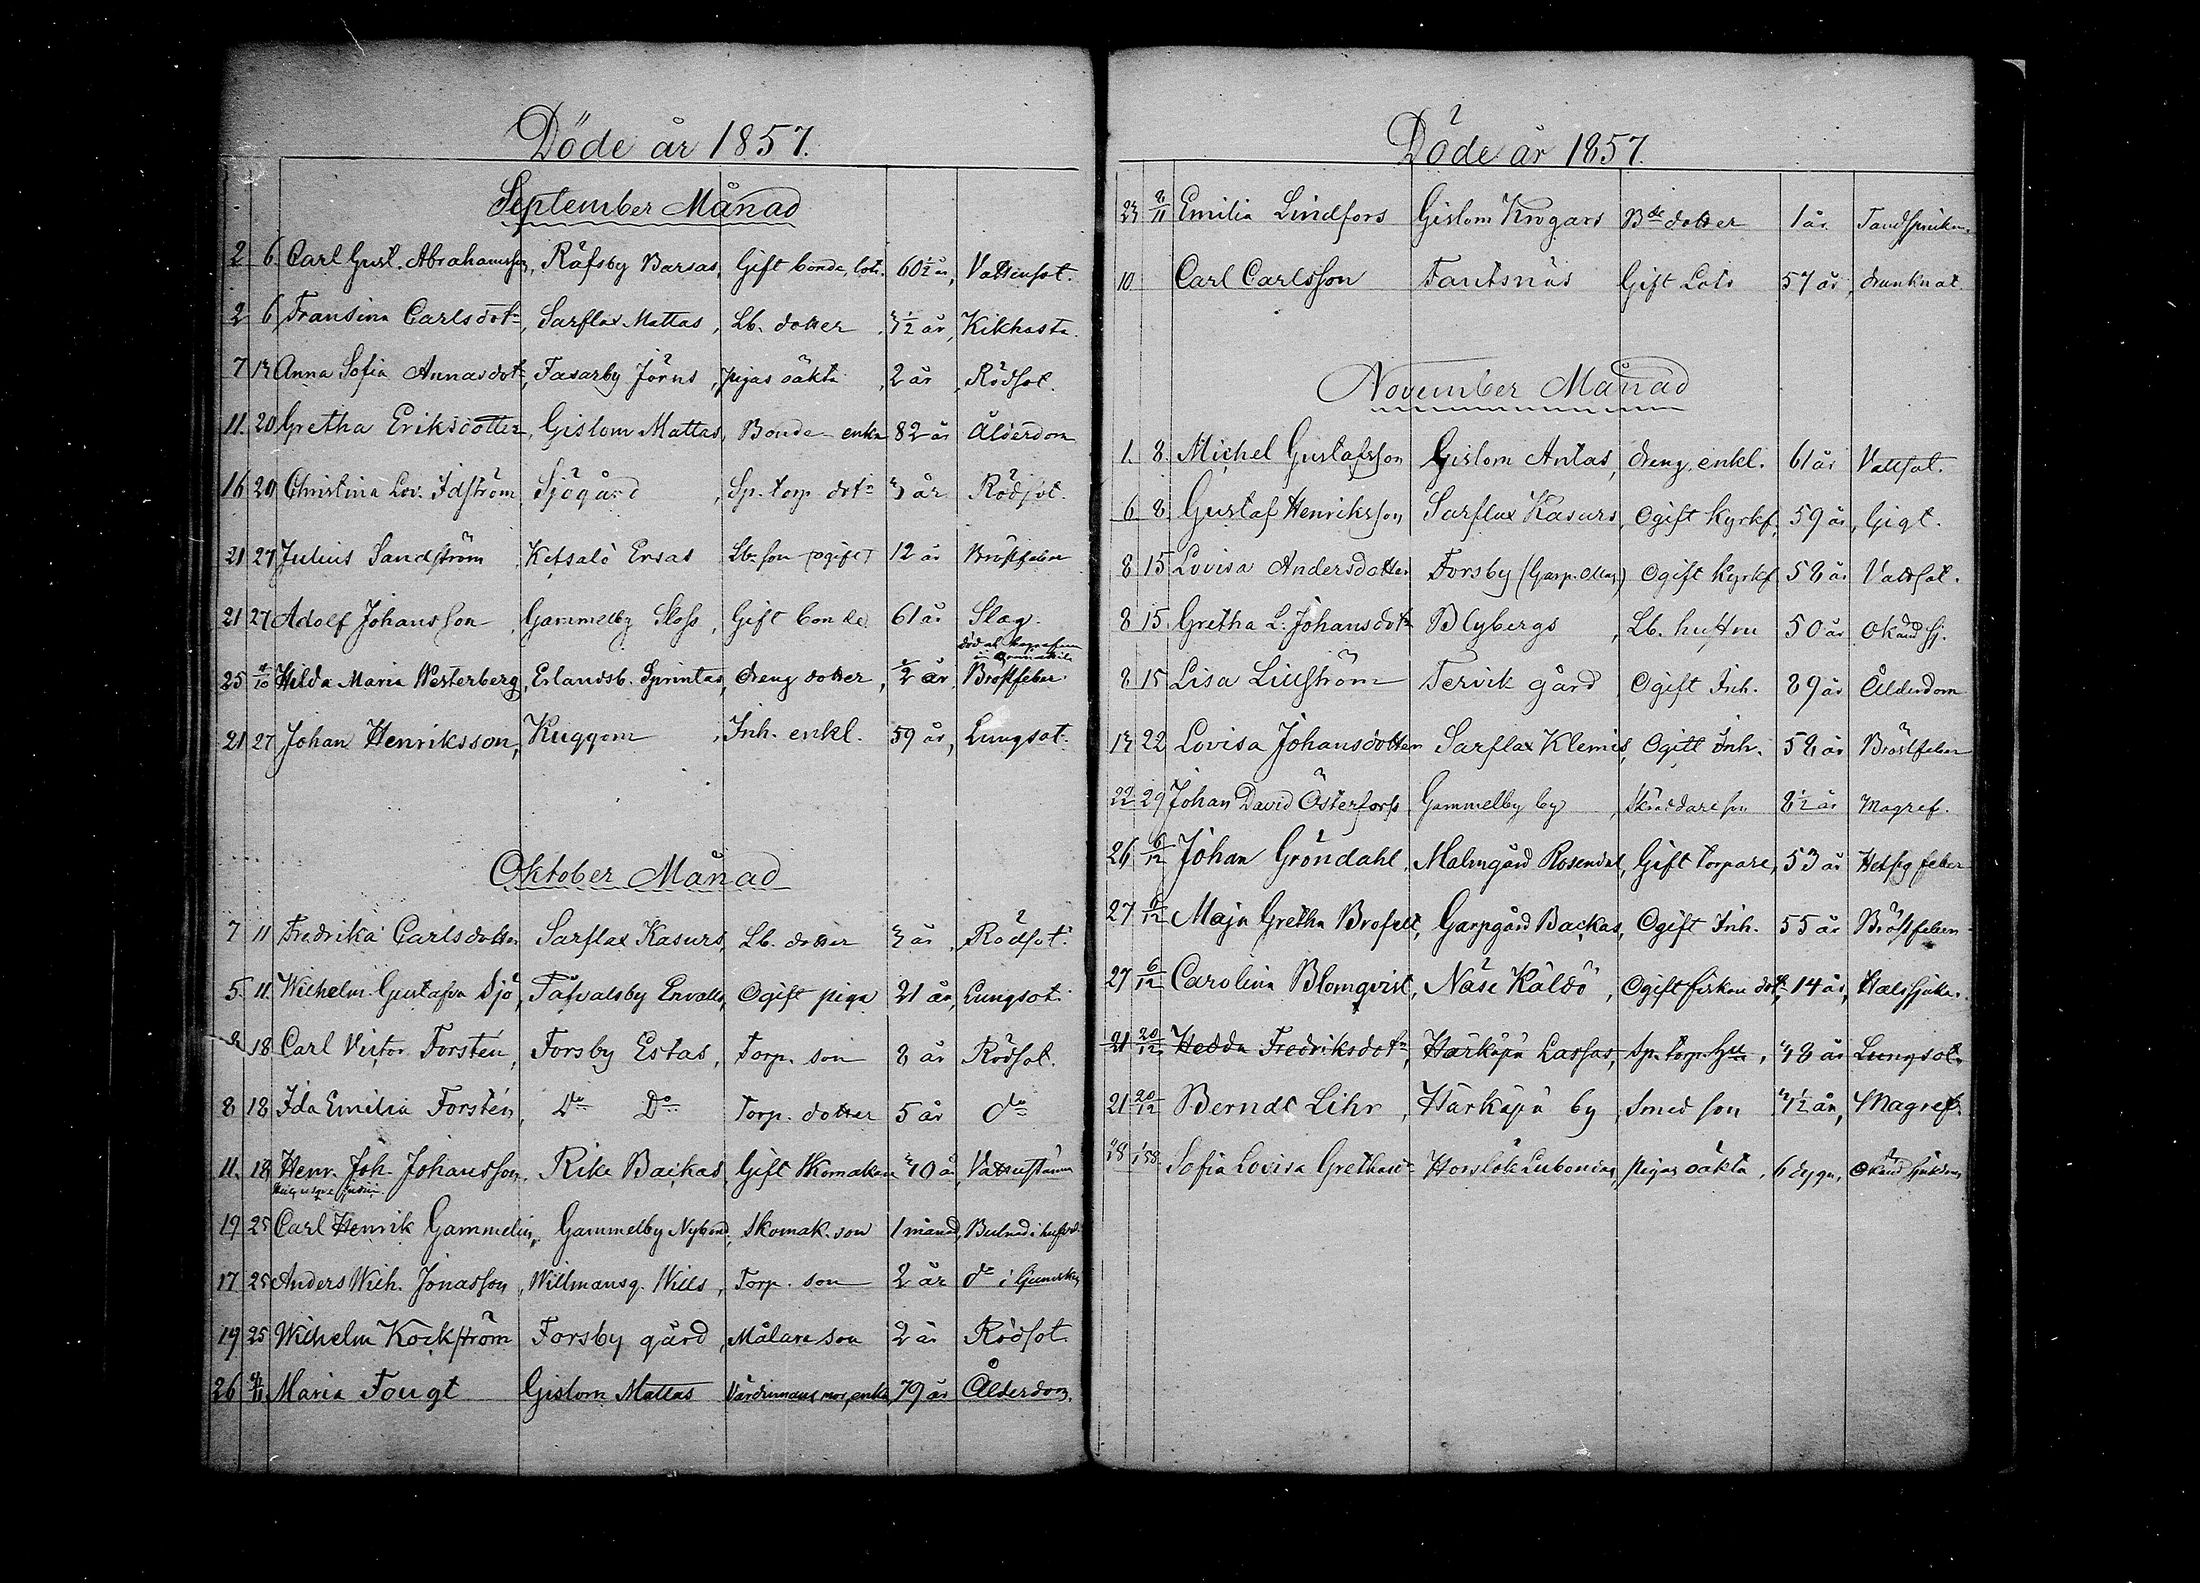 Döde år 1857.
September Månad
2 6 Carl Gust. Abrahamsson, Räfsby Barsas, Gift bonde, lots. 60 1/2 år, Vattusot.
2 6 Fransina Carlsdotr, Sarflax Mattas, Lb. dotter, 3 1/2 år, Kikhosta.
7 13 Anna Sofia Annasdotr, Fasarby Jörns, pigas oäkta, 2 år, Rödsot.
11. 20 Gretha Eriksdotter, Gislom Mattas, Bonde-enka 82 år Ålderdom
16 20 Christina Lov. Idström Sjögård, Sp. torp. dotr 3 år Rödsot.
21 27 Julius Sandström Ketsalö Ersas Lb. son (ogift) 12 år Bröstfeber
21 27 Adolf Johansson, Gammelby Sloss, Gift bonde 61 år Slag.
död af
25 4/10 Hilda Maria Westerberg, Erlandsb. Sprintas, dreng dotter, 1/2 år, Bröstfeber.
21 27 Johan Henriksson, Kuggom, Inh. enkl. 59 år, Lungsot.
Oktober Månad
7 11 Fredrika Carlsdotter Sarflax Kasurs, Lb. dotter 3 år, Rödsot.
5. 11. Wilhelm. Gustafva Sjö, Tåfvalsby Ervalls, Ogift piga 21 år, Lungsot.
8 18 Carl Victor Forstén, Forsby Estas, Torp. son 8 år Rödsot.
8 18 Ida Emilia Forstén, Do Do Torp. dotter 5 år do
11. 18 Henr. Joh. Johansson, Rike Backas, Gift Skomakare 40 år,
19 25 Carl Henrik Gammelin, Gammelby Nybond, Skomak. son 1 månad, Bulnad i hufvud.
17 25 Anders Wilh. Jonasson, Willmansg. Wills, Torp. son 2 år do i
19 25 Wilhelm Kockström Forsby gård, Målare son 2 år Rödsot.
26 /11 Maria Fougt Gislom Mattas Värdinnans mor, enka, 79 år Ålderdom.
Döde år 1857.
23 8/11 Emilia Lindfors Gislom Krogars Bde dotter 1 år
10 Carl Carlsson Fantsnäs Gift Lots 57 år, drunknat.
November Månad
1. 8. Michel Gustafsson Gislom Antas, dreng. enkl. 61 år Vattsot.
6 8. Gustaf Henriksson Sarflax Kasurs, Ogift Kyrkf. 59 år, Gigt.
8 15 Lovisa Andersdotter Forsby (Garp. Mag.) Ogift Kyrkf 58 år Vattsot.
8 15. Gretha L. Johansdotr Blybergs, Lb. hustru 50 år Okänd sj.
8 15 Lisa Liljström Tervik gård Ogift Inh. 89 år Ålderdom
13 22 Lovisa Johansdotter Sarflax Klemis, Ogift Inh. 58 år Bröstfeber
22 29 Johan David Österforss Gammelby by, Skräddare son 8 1/2 år Magref.
26 6/12 Johan Gröndahl, Malmgård Rosendal, Gift torpare, 53 år Hetsig feber
27 6/12 Maja Gretha Brofelt, Garpgård Backas, Ogift Inh. 55 år Bröstfeber
27 6/12 Carolina Blomqvist, Näse Kåldö, Ogift fiskar dotr, 14 år, Halssjukd.
21 20/12 Hedda Fredriksdotr, Härkäpä Lassas, Sp. torp. Hu, 48 år Lungsot.
21 20/12 Berndt Lihr, Härkäpä by, Smed son 4 1/2 år, Magref.
28 1/1 58. Sofia Lovisa Grethasd Horslök Lubonias, pigas oäkta, 6 dygn, Okänd sjukdom